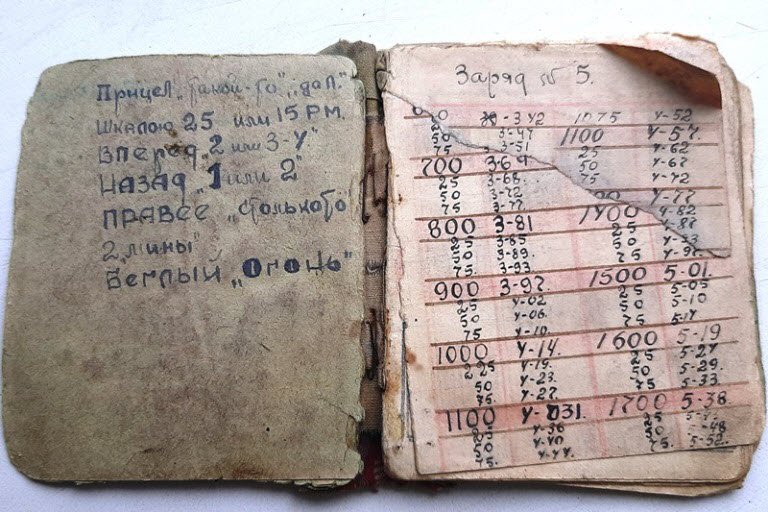 Прицел „такой-то", „дал."
шкалою 25 или 15 РМ.
вперед „2 или 3-У"
НАЗАД „1 или 2"
ПРАВЕЕ „столькото"
2 „мины"
Беглый „Огонь"
Заряд № 5.
3-42 1075 У-52
50 3-47 1100 У-57.
75 3-51 25 У-62
700 3-64 50 У-67
25 3-68. 75 У-72
50 3-72 У-77
75 3-77. 1400 У-82
800 3-81 25
25 3-85 50
50 3-89. 75
75. 3-93 1500 5-01.
900 3-97. 25 5-05
25 У-02 50 5-10
50 У-06. 75
75 У-10. 1600 5-19
1000 У-14. 25 5-24
225 У-19. 50 5-29.
50 У-23. 75 5-33.
75. У-27. 1700 5-38.
1100 У-031. 25
У-36 50
50 У-40 75. 5-52.
75. У-44.